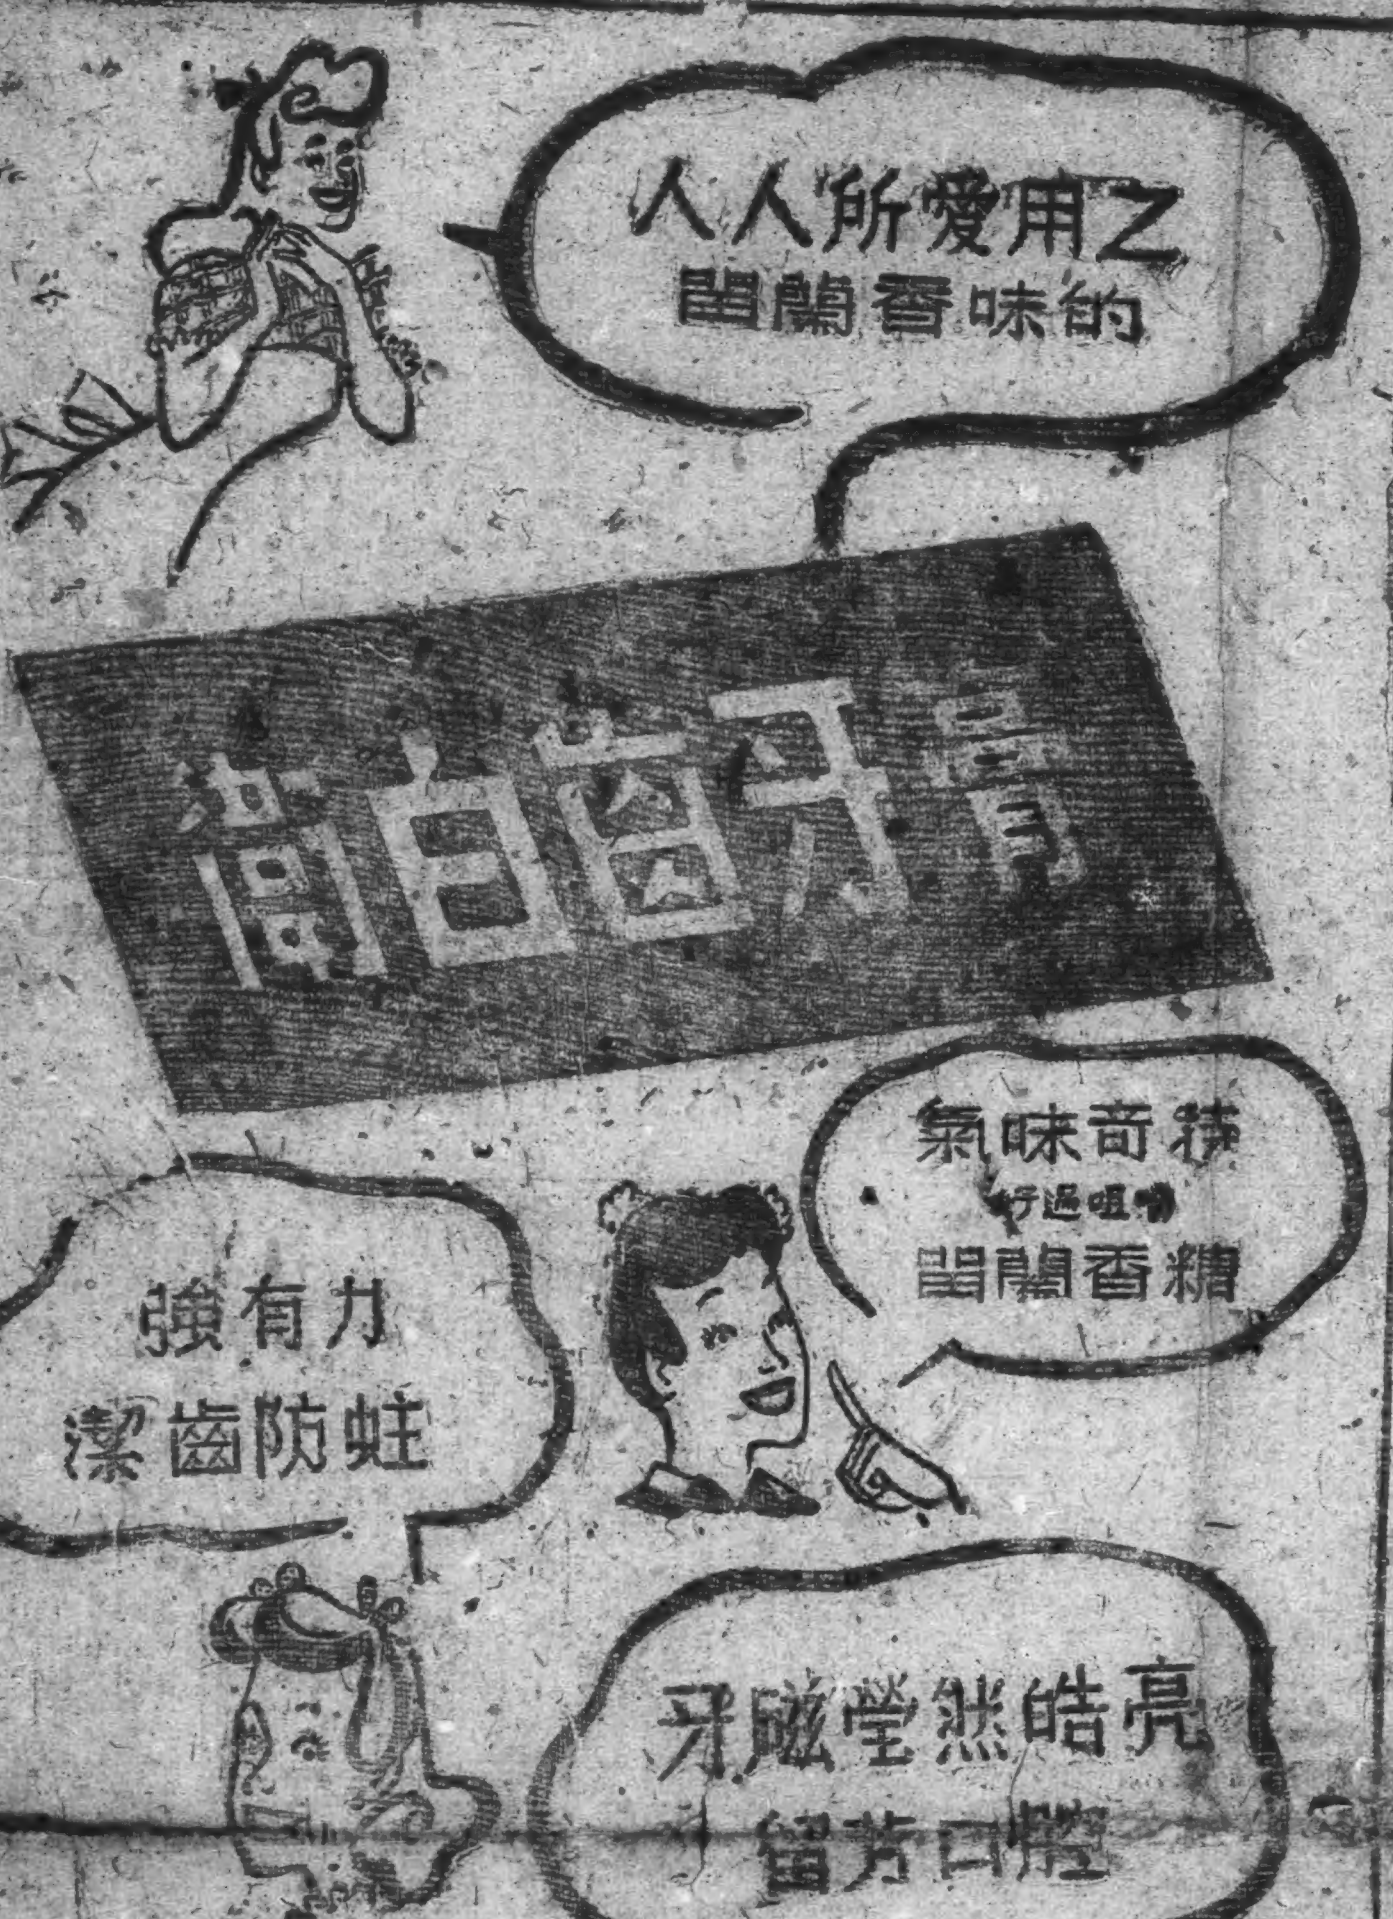 人人所愛用之
畱蘭香味的
白齒牙膏
氣味奇特
(好過咀嚼)
畱蘭香糖
強有力
潔齒防蛀
牙磁瑩然皓亮
留芳口腔